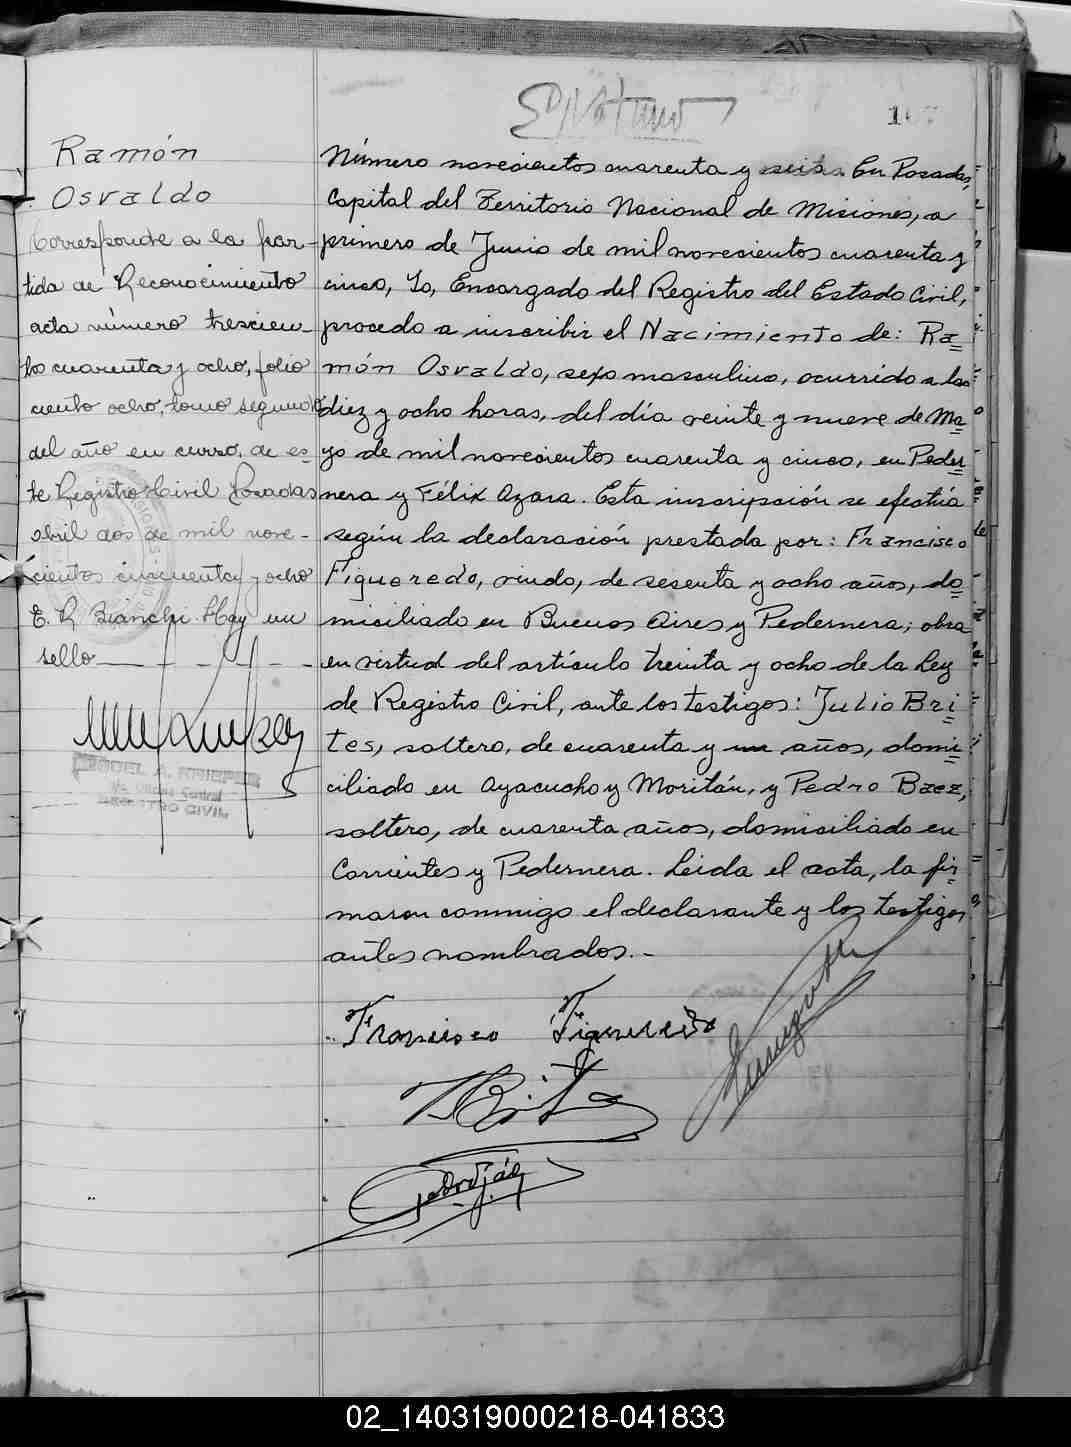 Ramón
Osvaldo
Corresponde a la par-
tida de Reconocimiento
acta número trescien-
tos cuarenta y ocho, folio
ciento ocho, tomo segundo
del año en curso, de es-
te Registro Civil Posadas
abril dos de mil nove-
cientos cincuenta y ocho
E. R. Bianchi. Hay un
sello
KRIEGER
Oficina Central
REGISTRO CIVIL
Número novecientos cuarenta y seis. En Posadas,
Capital del Territorio Nacional de Misiones, a
primero de Junio de mil novecientos cuarenta y
cinco, Yo, Encargado del Registro del Estado Civil,
procedo a inscribir el Nacimiento de: Ra=
món Osvaldo, sexo masculino, ocurrido a las
diez y ocho horas, del día veinte y nueve de Ma=
yo de mil novecientos cuarenta y cinco, en Peder=
nera y Félix Azara. Esta inscripción se efectúa
según la declaración prestada por: Francisco
Figueredo, viudo, de sesenta y ocho años, do=
miciliado en Buenos Aires y Pedernera; obra
en virtud del artículo treinta y ocho de la Ley
de Registro Civil, ante los testigos: Julio Bri=
tes, soltero, de cuarenta y un años, domi=
ciliado en Ayacucho y Moritán, y Pedro Baez,
soltero, de cuarenta años, domiciliado en
Corrientes y Pedernera. Leida el acta, la fir=
maron conmigo el declarante y los testigos
antes nombrados.-
Francisco Figueredo
02_140319000218-041833